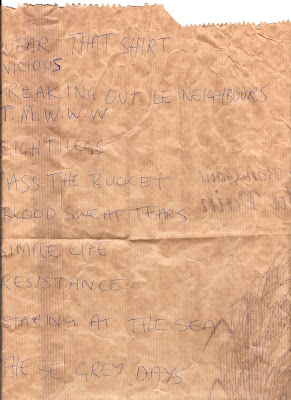 WEAR THAT SHIRT
VICIOUS
FREAKING OUT LE NEIGHBOURS
T.M.W.W.W
EIGHT LEGS
PASS THE BUCKET
BLOOD SWEAT TEARS
SIMPLE LIFE
RESISTANCE
STARING AT THE SEA
THESE GREY DAYS